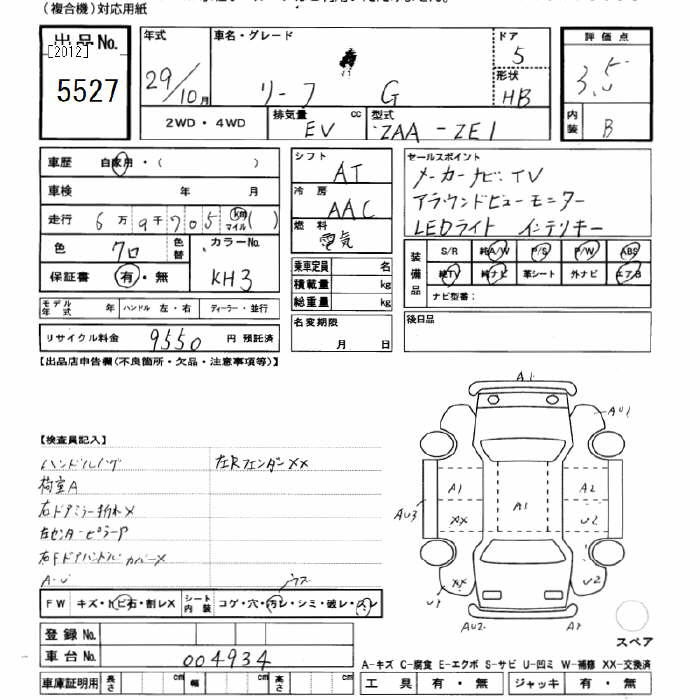 (複合機)対応用紙
出品No.
[2012]
5527
年式
29/10月
車名・グレード
リーフ G
ドア
5
形状
HB
評価点
3.5
内装
B
2WD・4WD
排気量
EV cc
型式
ZAA-ZE1
車歴 自家用・( )
車検 年 月
走行 6万9千705 km マイル( )
色 クロ 色替 カラーNo. KH3
保証書 有・無
モデル年式 年 ハンドル 左・右 ディーラー・並行
リサイクル料金 9550 円 預託済
シフト
AT
冷房
AAC
燃料
電気
乗車定員 名
積載量 kg
総重量 kg
名変期限
月 日
セールスポイント
メーカーナビ:TV
アラウンドビューモニター
LEDライト インテリキー
装備品
S/R 純A/W P/S P/W ABS
純TV 純ナビ 革シート 外ナビ エアB
ナビ型番:
後日品
【出品店申告欄(不良箇所・欠品・注意事項等)】
【検査員記入】
ハンドルハゲ 左Rフェンダー××
荷室A
右ドアミラー折れ×
左センターピラーP
右Fドアハンドルカバー×
A・U
FW キズ・トビ石・割レX
シート内装 コゲ・穴・汚レ・シミ・破レ・スレ
登録No.
車台No. 004934
車庫証明用 長さ 幅 高さ
A1
AU1
A1
A1
A2
AU3
XX
U2
XX
U2
U9
AU2
スペア
A-キズ C-腐食 E-エクボ S-サビ U-凹ミ W-補修 XX-交換済
工具 有・無 ジャッキ 有・無